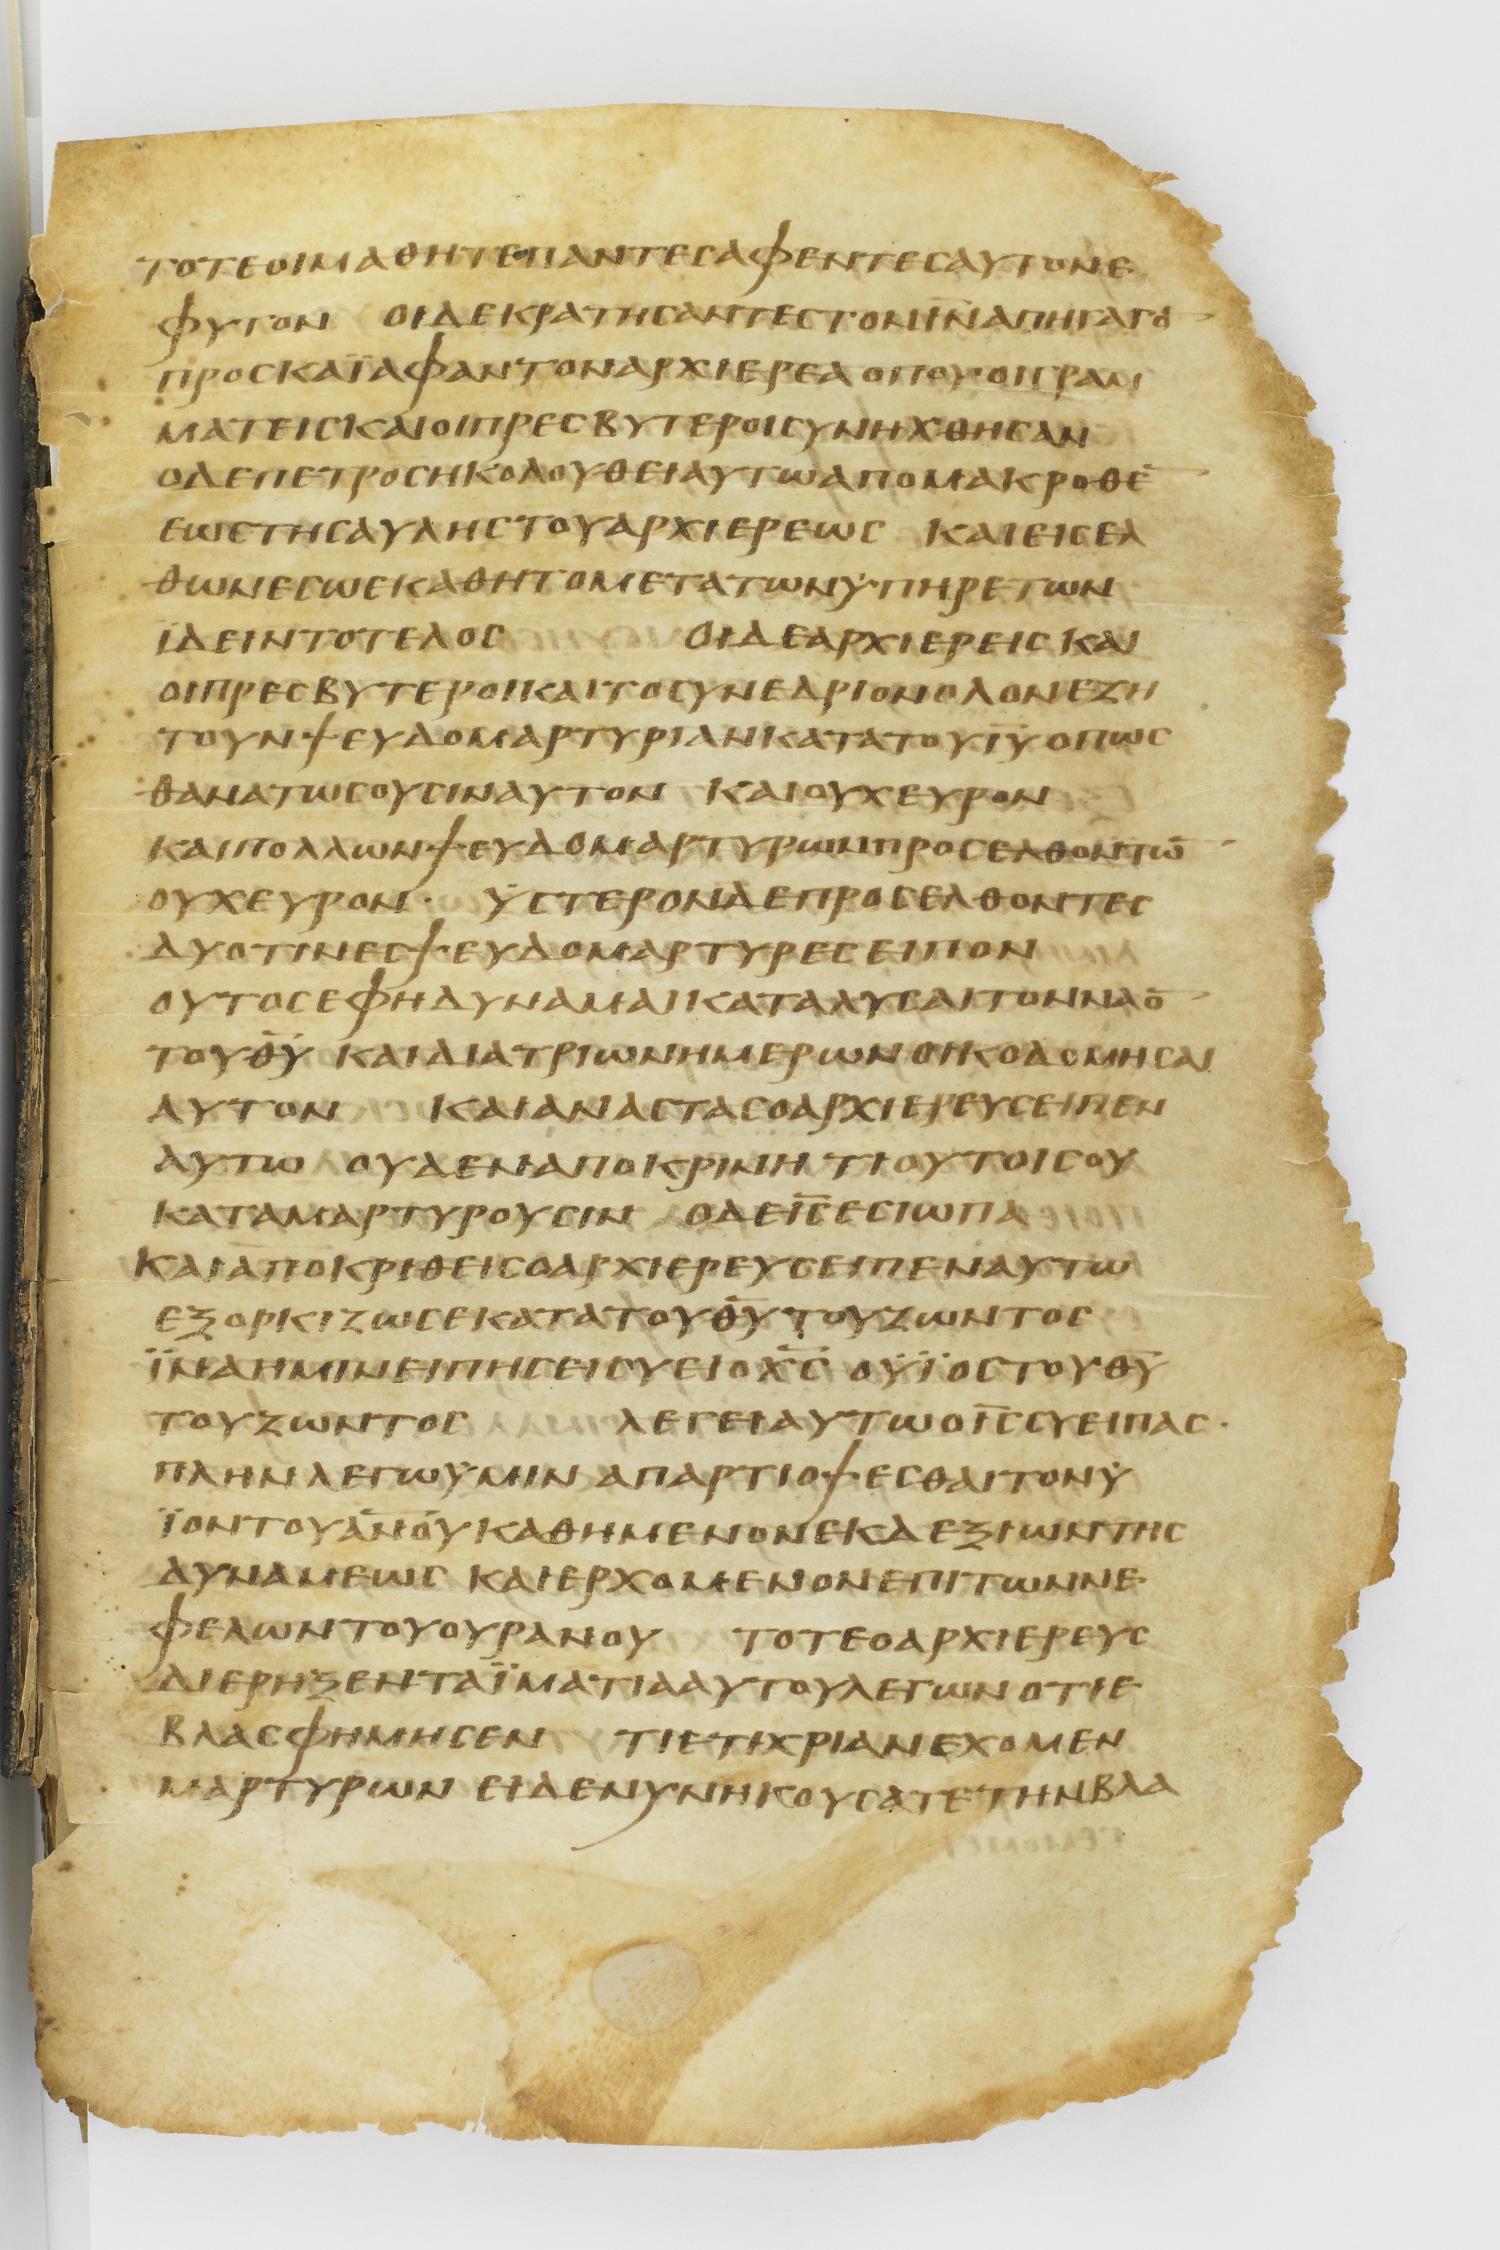 ΤΟΤΕΟΙΜΑΘΗΤΕΠΑΝΤΕСΑΦΕΝΤΕСΑΥΤΟΝΕ
ΦΥΓΟΝ ΟΙΔΕΚΡΑΤΗСΑΝΤΕСΤΟΝΙ̅Ν̅ΑΠΗΓΑΓΟ̅
ΠΡΟСΚΑΪΑΦΑΝΤΟΝΑΡΧΙΕΡΕΑΟΠΟΥΟΙΓΡΑΜ
ΜΑΤΕΙСΚΑΙΟΙΠΡΕСΒΥΤΕΡΟΙСΥΝΗΧΘΗСΑΝ
ΟΔΕΠΕΤΡΟСΗΚΟΛΟΥΘΕΙΑΥΤΩΑΠΟΜΑΚΡΟΘΕ̅
ΕΩСΤΗСΑΥΛΗСΤΟΥΑΡΧΙΕΡΕΩС ΚΑΙΕΙСΕΛ
ΘΩΝΕСΩΕΚΑΘΗΤΟΜΕΤΑΤΩΝΥΠΗΡΕΤΩΝ
ΪΔΕΙΝΤΟΤΕΛΟС ΟΙΔΕΑΡΧΙΕΡΕΙСΚΑΙ
ΟΙΠΡΕСΒΥΤΕΡΟΙΚΑΙΤΟСΥΝΕΔΡΙΟΝΟΛΟΝΕΖΗ
ΤΟΥΝΨΕΥΔΟΜΑΡΤΥΡΙΑΝΚΑΤΑΤΟΥΙ̅Υ̅ΟΠΩС
ΘΑΝΑΤΩСΟΥСΙΝΑΥΤΟΝ ΚΑΙΟΥΧΕΥΡΟΝ
ΚΑΙΠΟΛΛΩΝΨΕΥΔΟΜΑΡΤΥΡΩΝΠΡΟСΕΛΘΟΝΤΩ̅
ΟΥΧΕΥΡΟΝ· ΥСΤΕΡΟΝΔΕΠΡΟСΕΛΘΟΝΤΕС
ΔΥΟΤΙΝΕСΨΕΥΔΟΜΑΡΤΥΡΕСΕΙΠΟΝ
ΟΥΤΟСΕΦΗΔΥΝΑΜΑΙΚΑΤΑΛΥСΑΙΤΟΝΝΑΟ̅
ΤΟΥΘ̅Υ̅ ΚΑΙΔΙΑΤΡΙΩΝΗΜΕΡΩΝΟΙΚΟΔΟΜΗСΑΙ
ΑΥΤΟΝ ΚΑΙΑΝΑСΤΑСΟΑΡΧΙΕΡΕΥСΕΙΠΕΝ
ΑΥΤΩ ΟΥΔΕΝΑΠΟΚΡΙΝΗ ΤΙΟΥΤΟΙСΟΥ
ΚΑΤΑΜΑΡΤΥΡΟΥСΙΝ ΟΔΕΙ̅С̅ΕСΙΩΠΑ
ΚΑΙΑΠΟΚΡΙΘΕΙСΟΑΡΧΙΕΡΕΥСΕΙΠΕΝΑΥΤΩ
ΕΞΟΡΚΙΖΩСΕΚΑΤΑΤΟΥΘ̅Υ̅ΤΟΥΖΩΝΤΟС
ΪΝΑΗΜΙΝΕΙΠΗСΕΙСΥΕΙΟΧ̅С̅ ΟΥΪΟСΤΟΥΘ̅Υ̅
ΤΟΥΖΩΝΤΟС ΛΕΓΕΙΑΥΤΩΟΙ̅С̅СΥΕΙΠΑС·
ΠΛΗΝΛΕΓΩΥΜΙΝ ΑΠΑΡΤΙΟΨΕСΘΑΙΤΟΝΥ
ΪΟΝΤΟΥΑ̅Ν̅Ο̅Υ̅ΚΑΘΗΜΕΝΟΝΕΚΔΕΞΙΩΝΤΗС
ΔΥΝΑΜΕΩС ΚΑΙΕΡΧΟΜΕΝΟΝΕΠΙΤΩΝΝΕ
ΦΕΛΩΝΤΟΥΟΥΡΑΝΟΥ ΤΟΤΕΟΑΡΧΙΕΡΕΥС
ΔΙΕΡΗΞΕΝΤΑΪΜΑΤΙΑΑΥΤΟΥΛΕΓΩΝΟΤΙΕ
ΒΛΑСΦΗΜΗСΕΝ ΤΙΕΤΙΧΡΙΑΝΕΧΟΜΕΝ
ΜΑΡΤΥΡΩΝ ΕΙΔΕΝΥΝΗΚΟΥСΑΤΕΤΗΝΒΛΑ